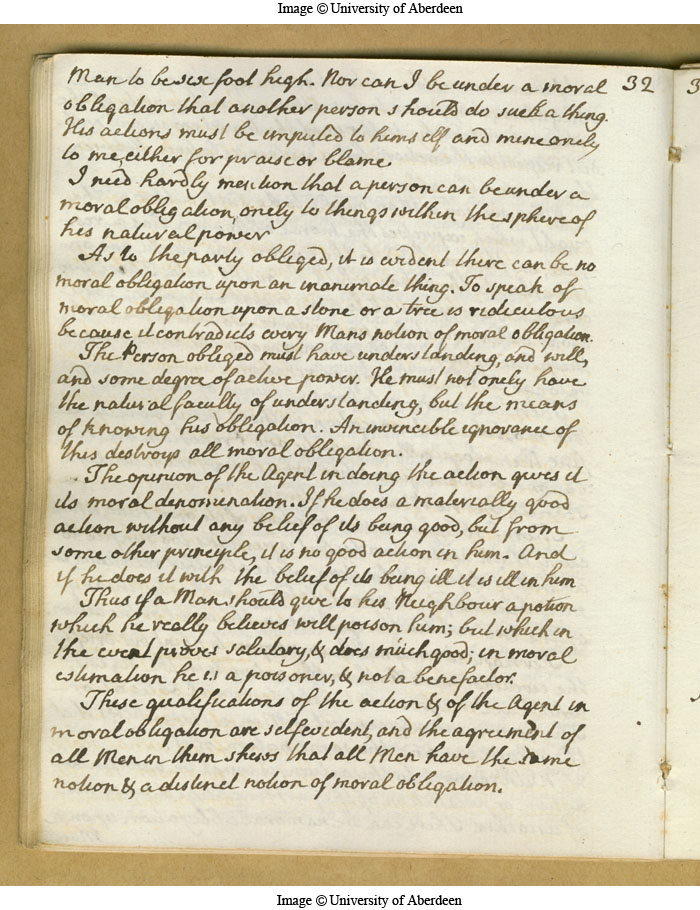 Image © University of Aberdeen
Man to be six foot high. Nor can I be under a moral 32 3
obligation that another person should do such a thing.
His actions must be imputed to himself and mine onely
to me, either for praise or blame
I need hardly mention that a person can be under a
moral obligation, onely to things within the sphere of
his natural power
As to the party obliged, it is evident there can be no
moral obligation upon an inanimate thing. To speak of
moral obligation upon a stone or a tree is ridiculous
because it contradicts every Mans notion of moral obligation.
The Person obliged must have understanding, and will,
and some degree of active power. He must not onely have
the natural faculty of understanding, but the means
of knowing his obligation. An invincible ignorance of
this destroys all moral obligation.
The opinion of the Agent in doing the action gives it
its moral denomination. If he does a materially good
action without any belief of its being good, but from
some other principle, it is no good action in him. And
if he does it with the belief of its being ill it is ill in him
Thus if a Man should give to his Neighbour a potion
which he really believes will poison him; but which in
the event proves salutary, & does much good; in moral
estimation he is a poisoner, & not a benefactor.
These qualifications of the action & of the Agent in
moral obligation are selfevident, and the agreement of
all Men in them shews that all Men have the same
notion & a distinct notion of moral obligation.
Image © University of Aberdeen